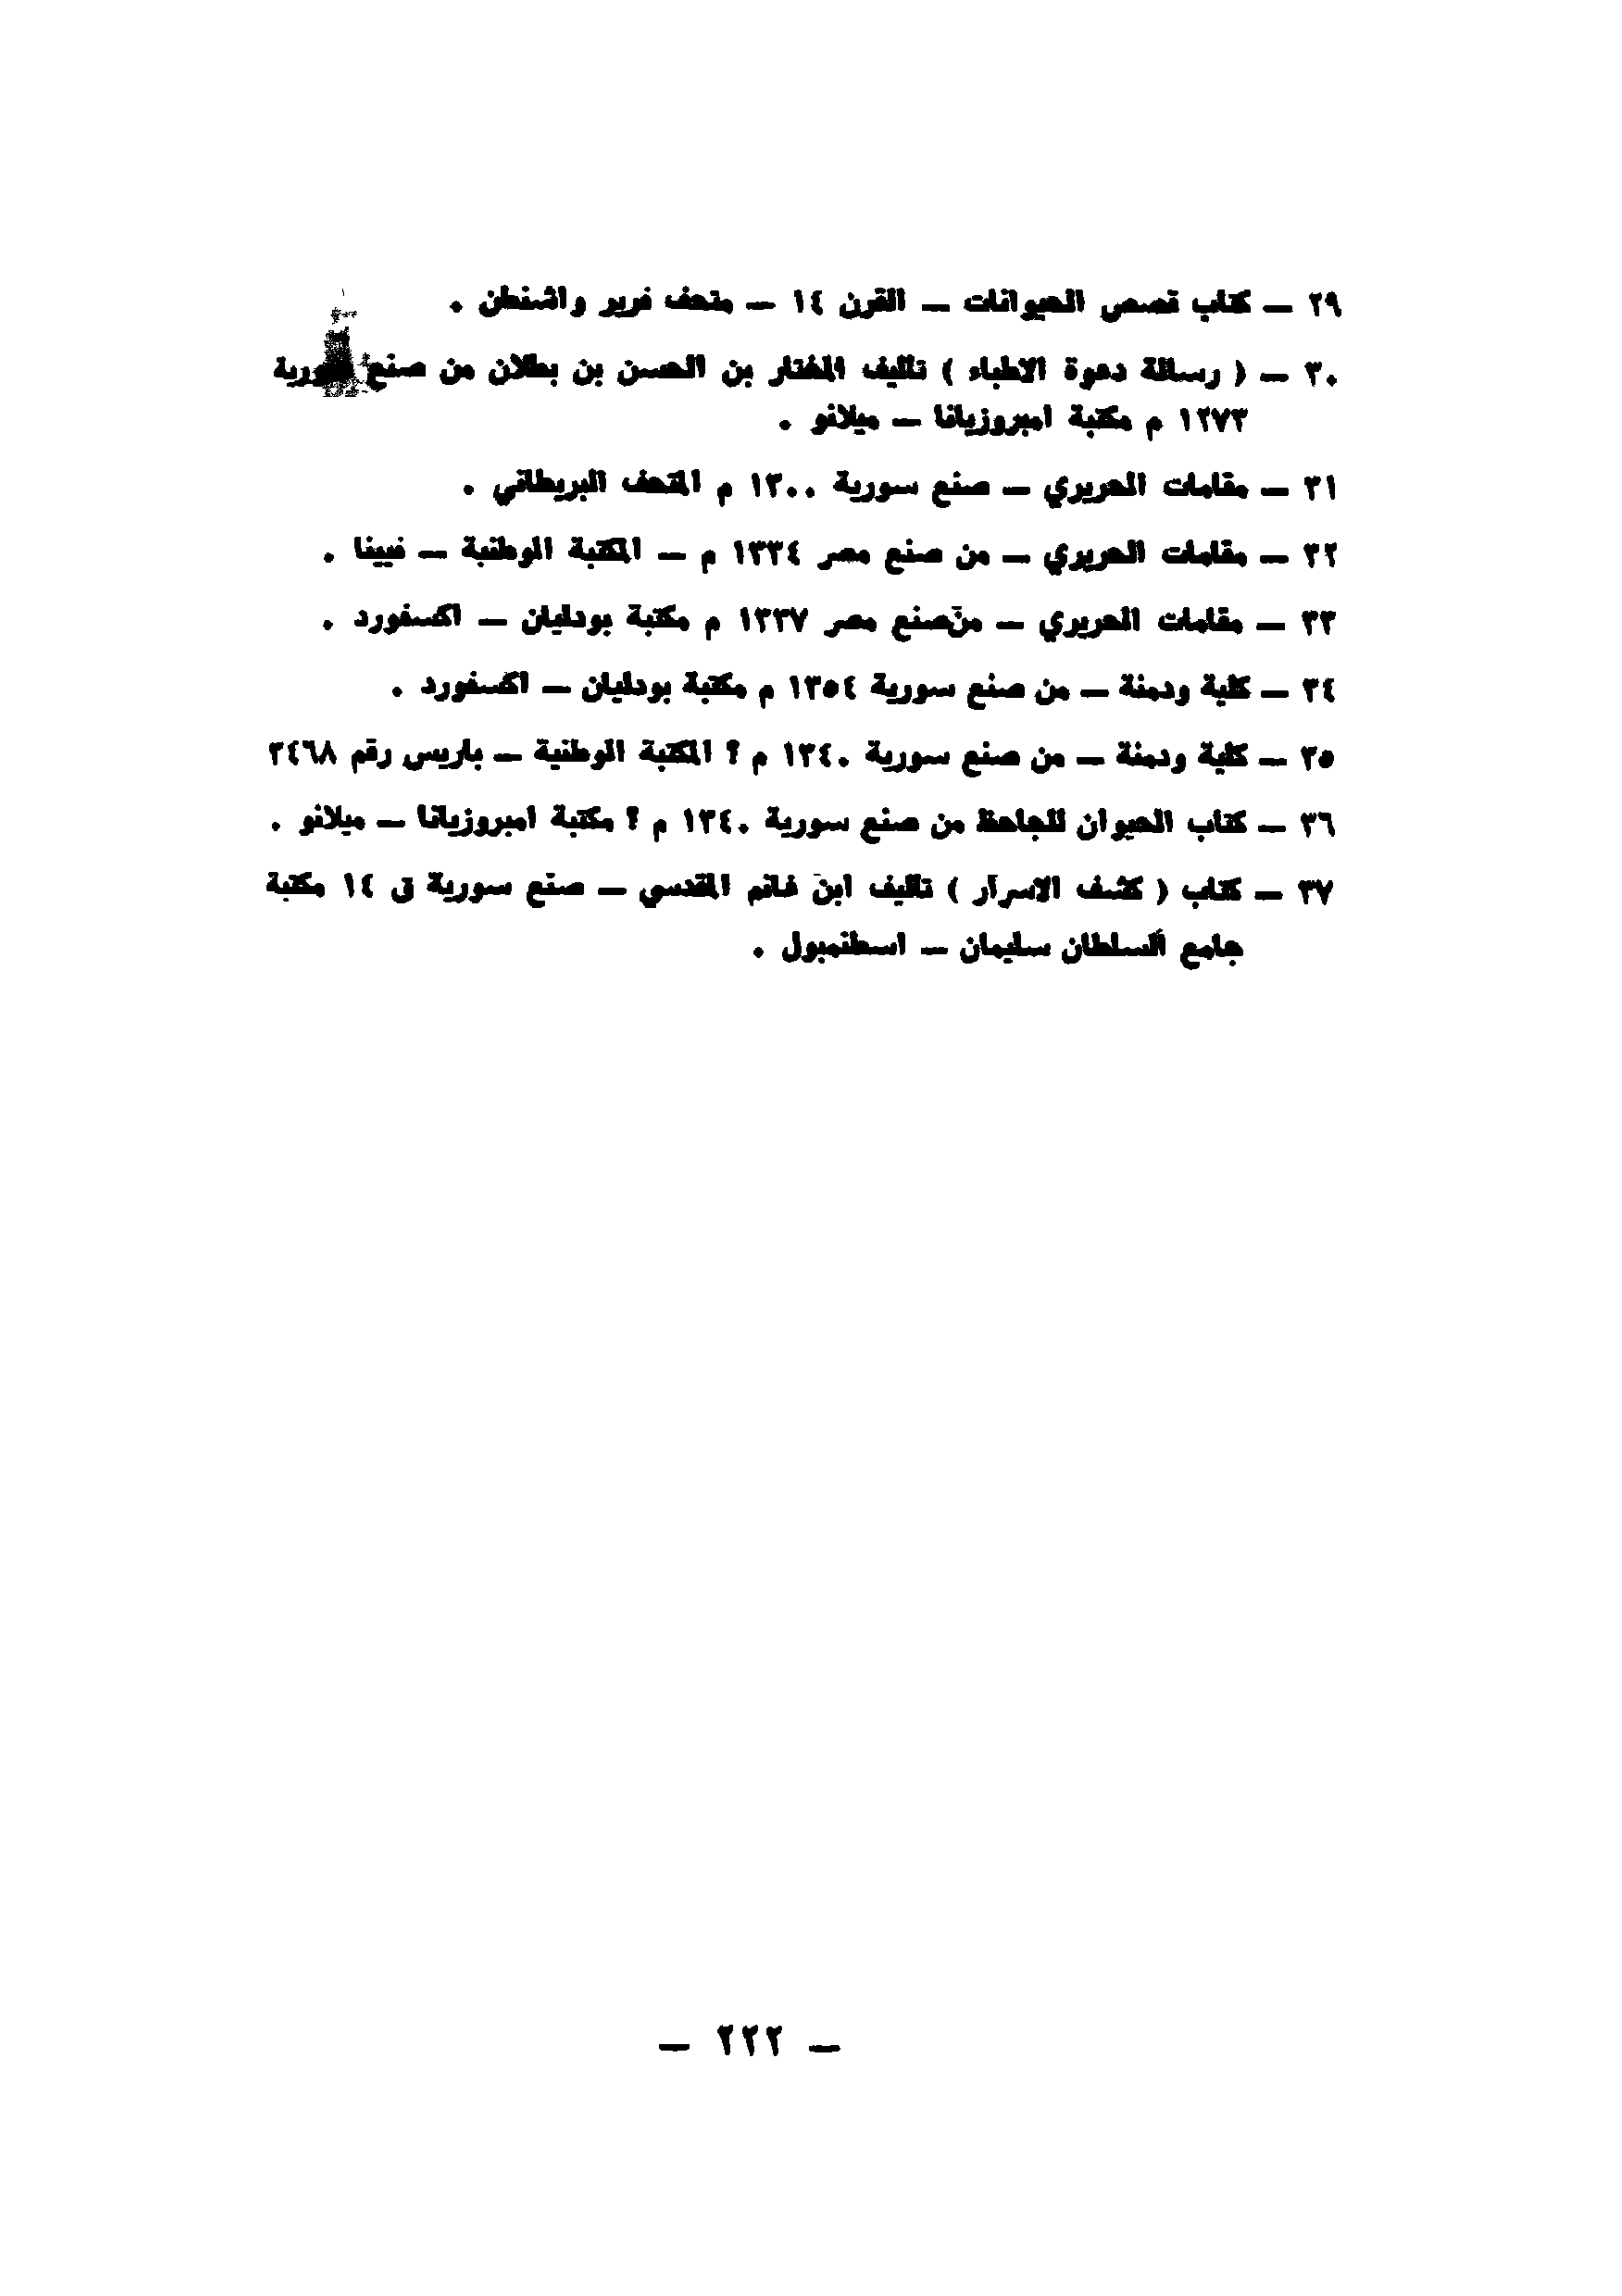 ٢٩ — كتاب قصص الحيوانات — القرن ١٤ — متحف فرير واشنطن .
٣٠ — ( رسالة دعوة الاطباء ) تأليف المختار بن الحسن بن بطلان من صنع سورية
١٢٧٣ م مكتبة امبروزيانا — ميلانو .
٣١ — مقامات الحريري — صنع سورية ١٣٠٠ م المتحف البريطاني .
٣٢ — مقامات الحريري — من صنع مصر ١٣٣٤ م — المكتبة الوطنية — فيينا .
٣٣ — مقامات الحريري — من صنع مصر ١٣٣٧ م مكتبة بودليان — اكسفورد .
٣٤ — كليلة ودمنة — من صنع سورية ١٣٥٤ م مكتبة بودليان — اكسفورد .
٣٥ — كليلة ودمنة — من صنع سورية ١٣٤٠ م ؟ المكتبة الوطنية — باريس رقم ٣٤٦٨
٣٦ — كتاب الحيوان للجاحظ من صنع سورية ١٣٤٠ م ؟ مكتبة امبروزيانا — ميلانو .
٣٧ — كتاب ( كشف الاسرار ) تأليف ابن غانم المقدسي — صنع سورية ق ١٤ مكتبة
جامع السلطان سليمان — اسطنمبول .
— ٢٢٢ —